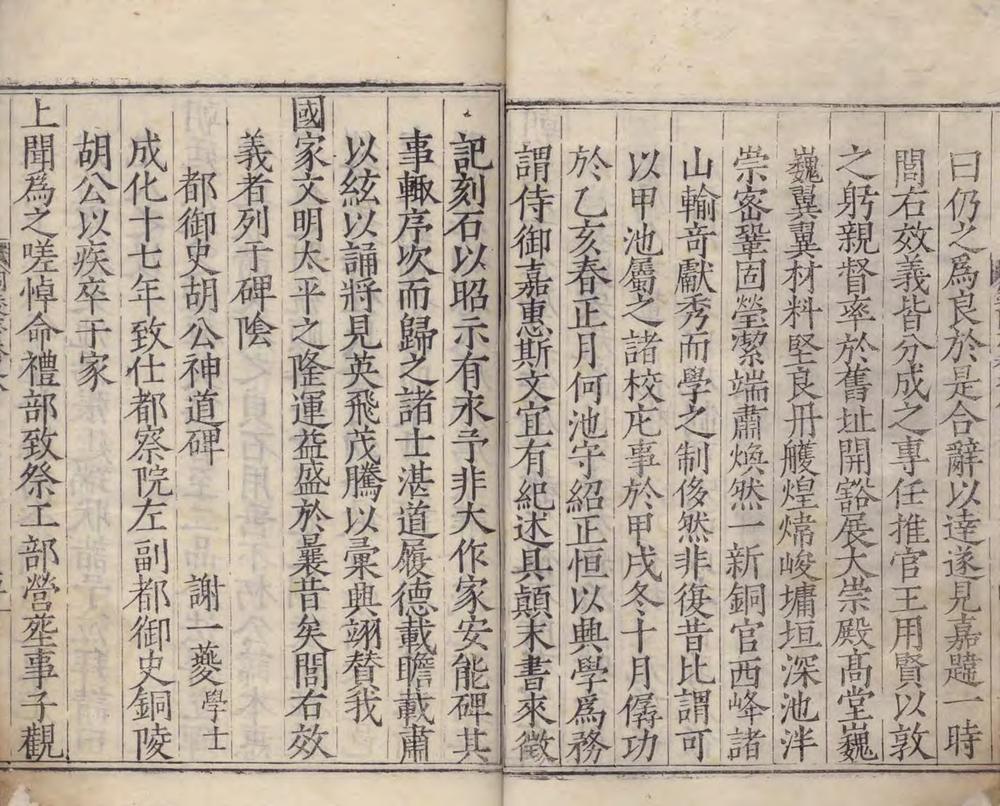 曰仍之爲良於是合辭以達遂見嘉韙一時
問右效義皆分成之專任推官王用賢以敦
之躬親督率於舊址開豁展大崇殿高堂巍
巍翼翼材料堅良丹雘煌煒峻墉垣深池泮
崇密鞏固瑩潔端肅煥然一新銅官西峰諸
山輸奇獻秀而學之制侈然非復昔比謂可
以甲池屬之諸校庀事於甲戌冬十月僝功
於乙亥春正月何池守紹正恒以興學爲務
謂侍御嘉惠斯文宜有紀述具顛末書來徵
記刻石以昭示有永予非大作家安能碑其
事輙序次而歸之諸士湛道履德載瞻載肅
以絃以誦將見英飛茂騰以彙興翊替我
國家文明太平之隆運益盛於曩昔矣問右效
義者列于碑陰
都御史胡公神道碑 謝一夔學士
成化十七年致仕都察院左副都御史銅陵
胡公以疾卒于家
上聞爲之嗟悼命禮部致祭工部營塋事子觀